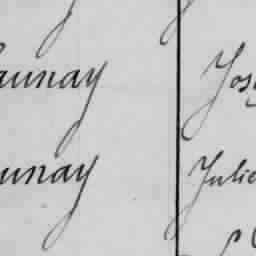 aunay Jos
unay Julie